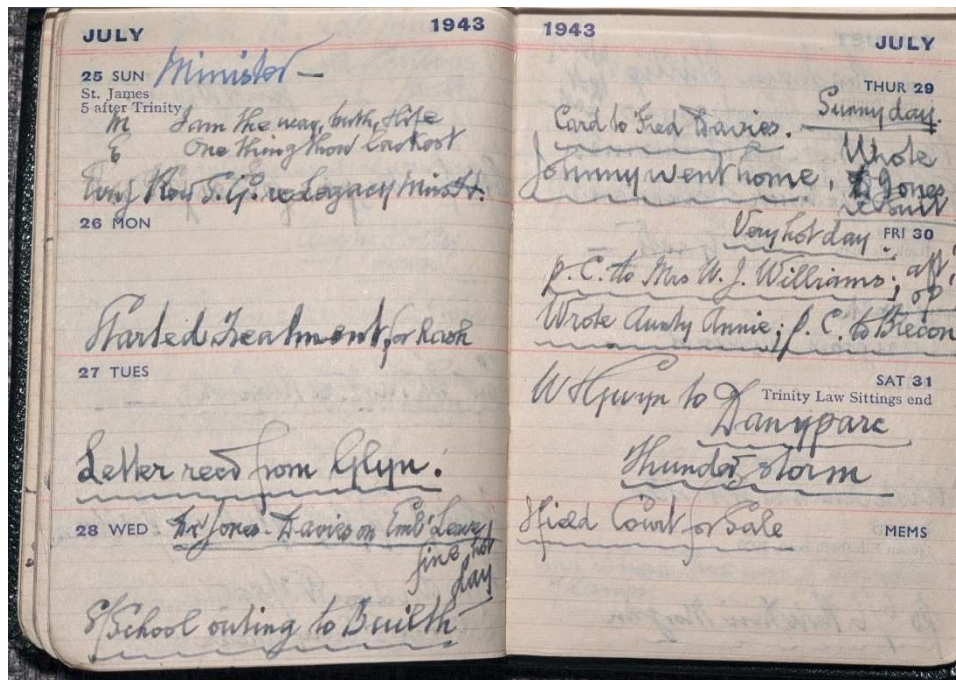 JULY 1943
25 SUN Minister —
St. James
5 after Trinity
M I am the way, truth, & life
E One thing thou lackest
S.G. re Legacy
26 MON
Started Treatment for Rash
27 TUES
Letter recd from Glyn.
28 WED Dr Jones-Davies on Emb' Leave
fine, hot
day
S/School outing to Builth
1943 JULY
THUR 29
Sunny day.
Card to Fred Davies.
Wrote
Johnny went home, Jones
FRI 30
Very hot day.
P.C. to Mrs W. J. Williams;
Wrote Aunty Annie; P.C. to Brecon
SAT 31
Trinity Law Sittings end
W H Gwyn to
Danyparc
Thunder storm
Ffield Court for Sale
MEMS